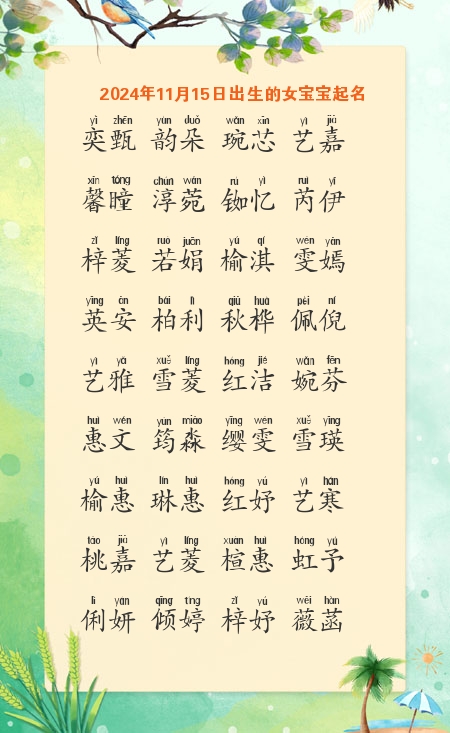 2024年11月15日出生的女宝宝起名
yì zhēn yùn duǒ wǎn xīn yì jiā
奕甄 韵朵 琬芯 艺嘉
xīn tóng chún wǎn rú yì ruì yī
馨瞳 淳菀 铷忆 芮伊
zǐ líng ruò juān yú qí wén yān
梓菱 若娟 榆淇 雯嫣
yīng ān bǎi lì qiū huà pèi ní
英安 柏利 秋桦 佩倪
yì yǎ xuě líng hóng jié wǎn fēn
艺雅 雪菱 红洁 婉芬
huì wén yún miǎo yīng wén xuě yīng
惠文 筠淼 缨雯 雪瑛
yú huì lín huì hóng yú yì hán
榆惠 琳惠 红妤 艺寒
táo jiā yì líng xuān huì hóng yú
桃嘉 艺菱 楦惠 虹予
lì yán qīng tíng zǐ yú wēi hàn
俐妍 倾婷 梓妤 薇菡